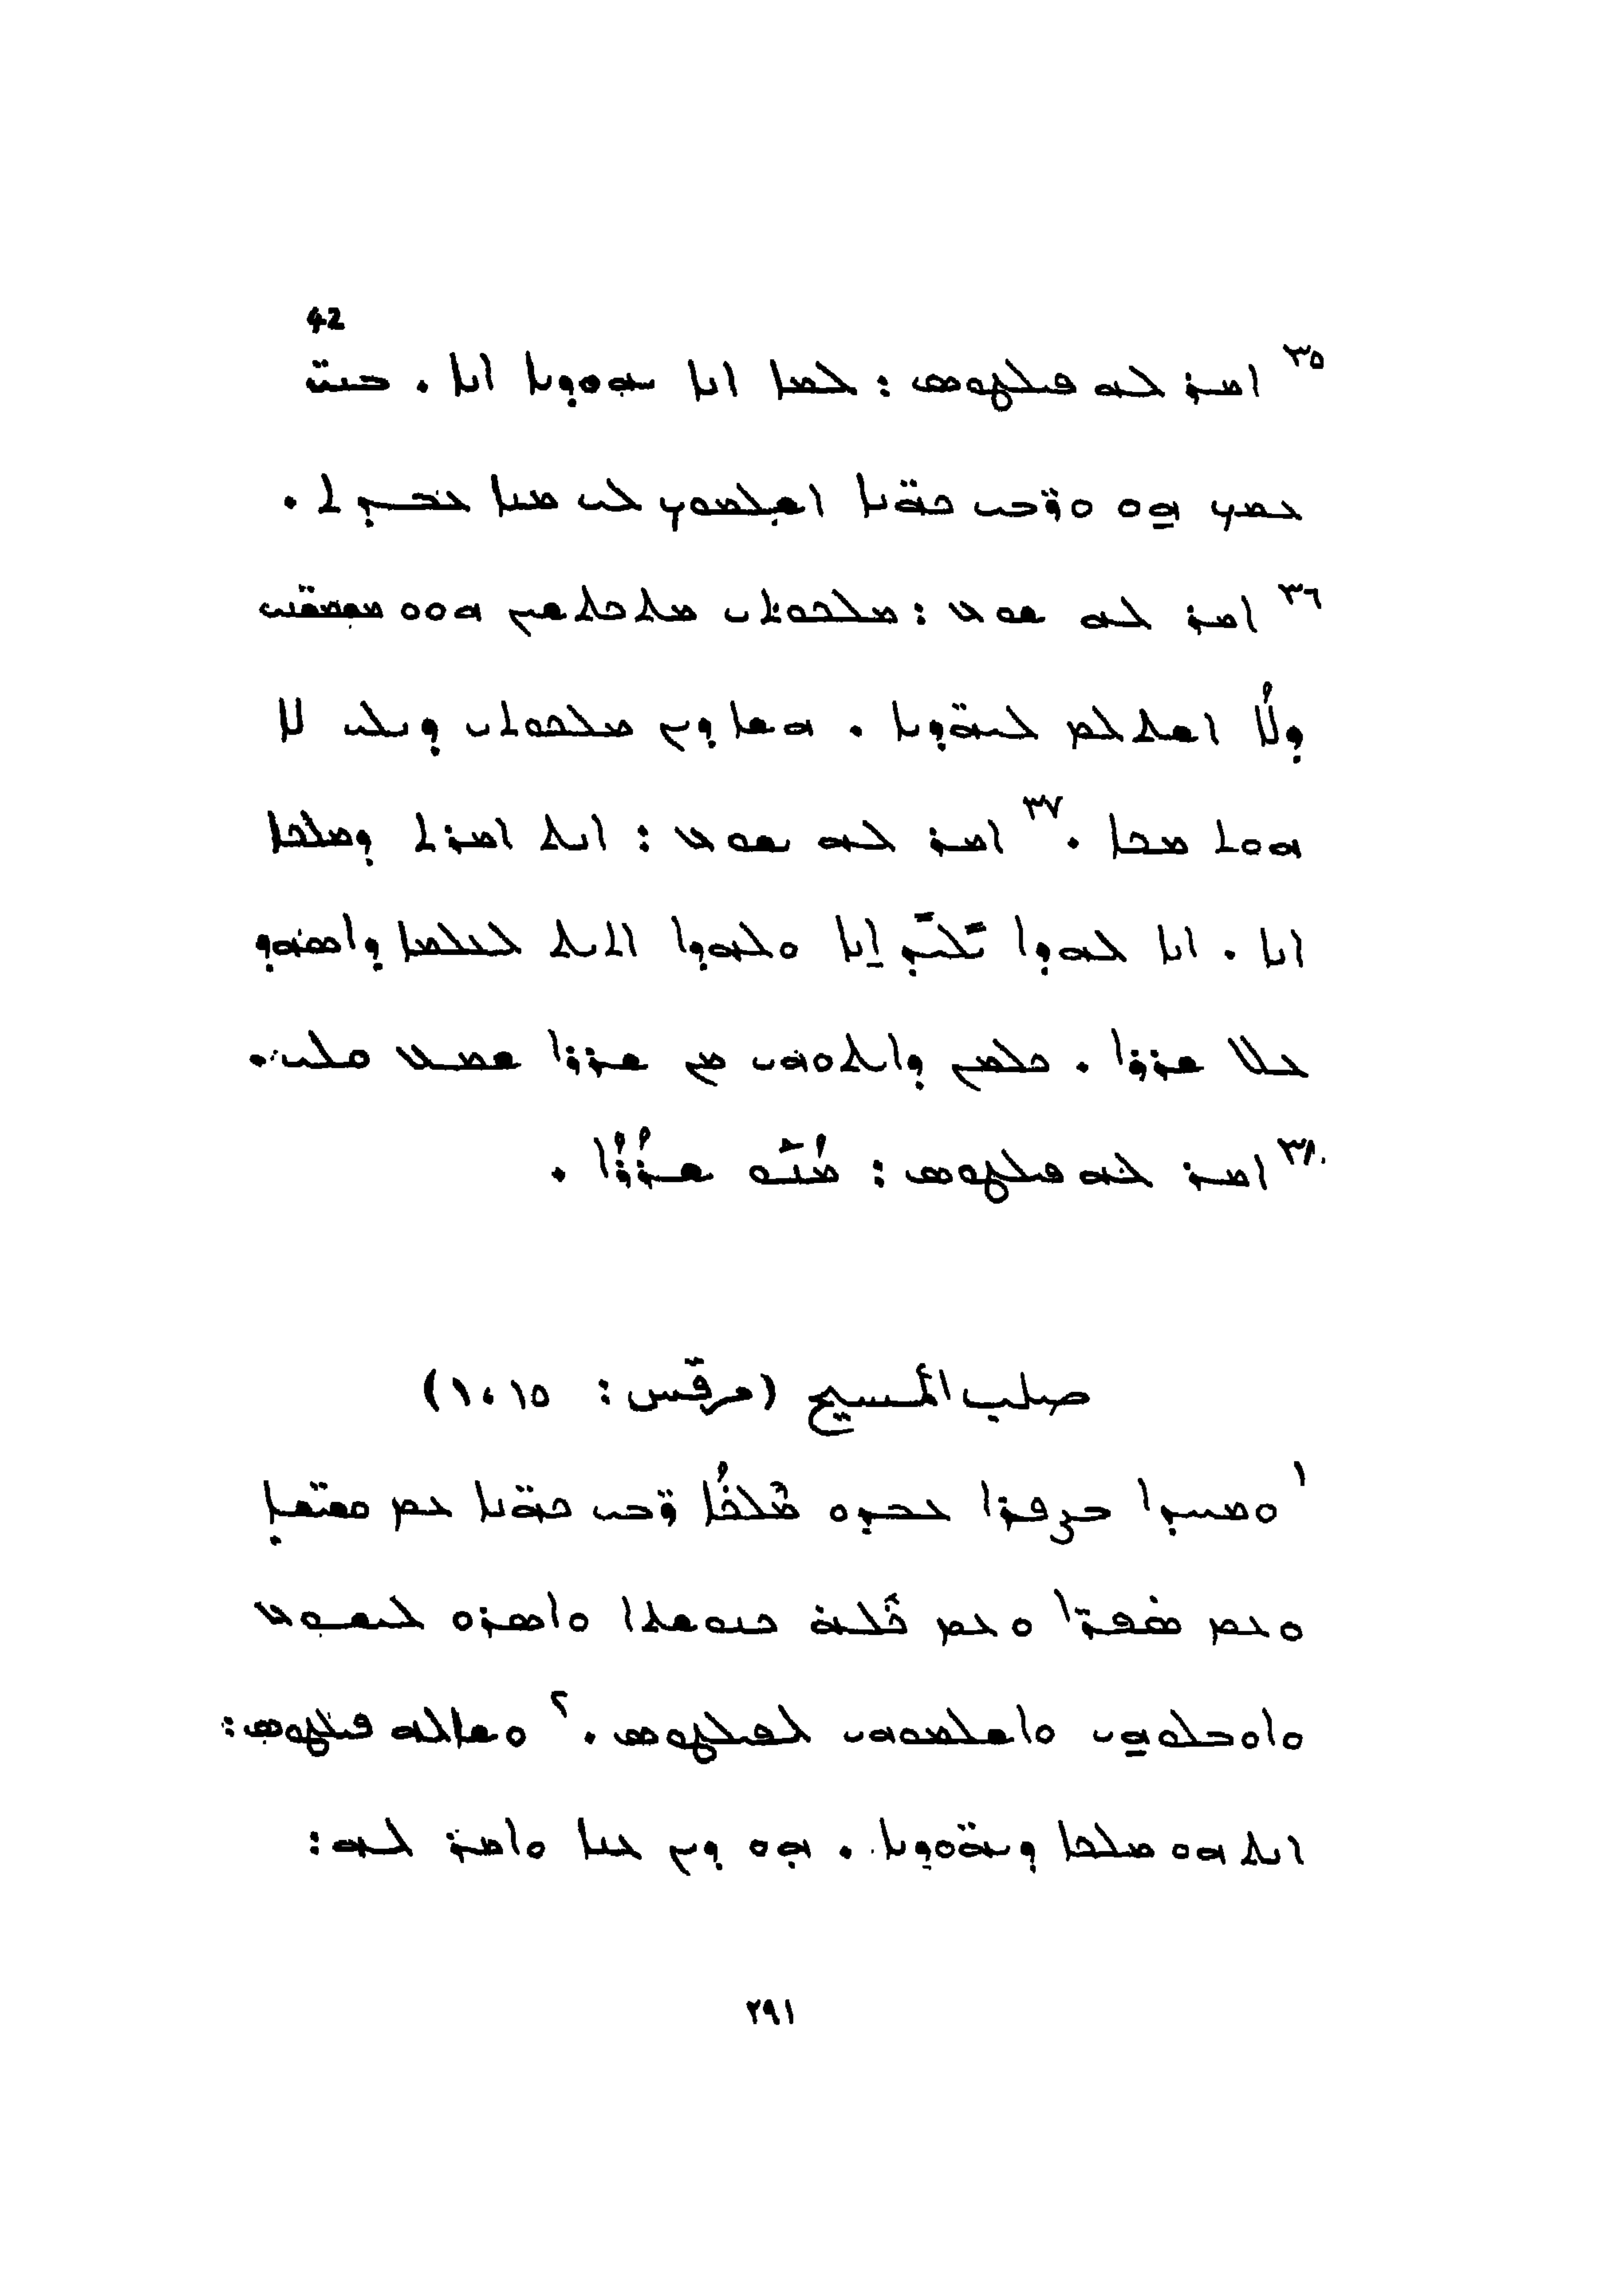 42
٣٥ ܐܡܪ ܠܗ ܦܝܠܛܘܣ : ܠܡܐ ܐܢܐ ܝܗܘܕܝܐ ܐܢܐ . ܒܢܝ̈
ܥܡܟ ܗܘ ܘܪ̈ܒܝ ܟܗ̈ܢܐ ܐܫܠܡܘܟ ܠܝ ܡܢܐ ܥܒܕܬ .
٣٦ ܐܡܪ ܠܗ ܝܫܘܥ : ܡܠܟܘܬܝ ܡܬܟܬܫܝܢ ܗܘܘ ܡܫܡܫ̈ܢܝ
ܕܠܳܐ ܐܫܬܠܡ ܠܝܗ̈ܘܕܝܐ . ܗܫܐ ܕܝܢ ܡܠܟܘܬܝ ܕܝܠܝ ܠܐ
ܗܘܬ ܡܟܐ . ٣٧ ܐܡܪ ܠܗ ܝܫܘܥ : ܐܢܬ ܐܡܪܬ ܕܡܠܟܐ
ܐܢܐ . ܐܢܐ ܠܗܕܐ ܝܠܝܕ ܐܢܐ ܘܠܗܕܐ ܐܬܝܬ ܠܥܠܡܐ ܕܐܣܗܕ
ܥܠ ܫܪܪܐ . ܟܠܡܢ ܕܐܝܬܘܗܝ ܡܢ ܫܪܪܐ ܫܡܥ ܩܠܝ .
٣٨ ܐܡܪ ܠܗ ܦܝܠܛܘܣ : ܡܳܢܰܘ ܫܪܳܪܳܐ .
صلب المسيح (مرقس : ١٥، ١)
١ ܘܡܚܕܐ ܒܨܦܪܐ ܥܒܕܘ ܡܶܠܟܳܐ ܪ̈ܒܝ ܟܗ̈ܢܐ ܥܡ ܩܫ̈ܝܫܐ
ܘܥܡ ܣܦܪ̈ܐ ܘܥܡ ܟܠܗ ܟܢܘܫܬܐ ܘܐܣܪܘ ܠܝܫܘܥ
ܘܐܘܒܠܘܗܝ ܘܐܫܠܡܘܗܝ ܠܦܝܠܛܘܣ . ٢ ܘܫܐܠܗ ܦܝܠܛܘܣ :
ܐܢܬ ܗܘ ܡܠܟܐ ܕܝܗ̈ܘܕܝܐ . ܗܘ ܕܝܢ ܥܢܐ ܘܐܡܪ ܠܗ :
٢٩١